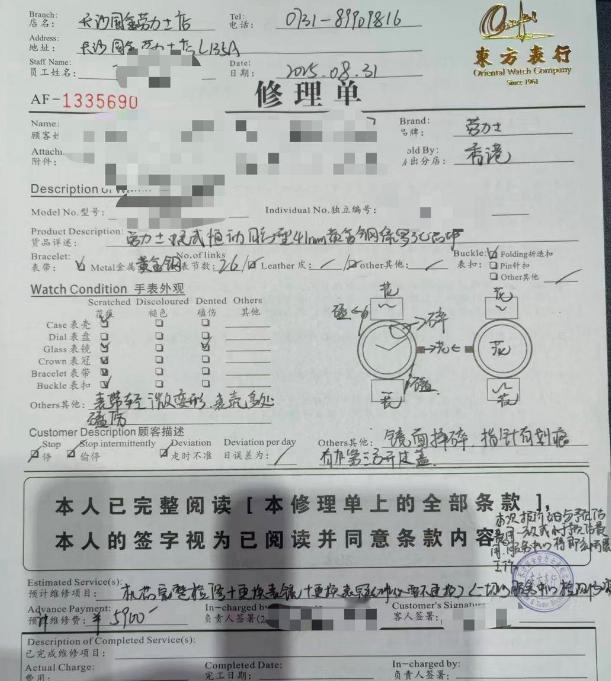 Branch: 店名: 长沙国金劳力士店 Tel: 电话: 0731-89909816
Address: 地址: 长沙国金劳力士店L135A
东方表行
Oriental Watch Company
Since 1961
Staff Name: 员工姓名: Date: 日期: 2025.08.31
AF-1335690 修理单
Name: 顾客 Brand: 品牌: 劳力士
附件: old By: 出分店: 香港
Description of
Model No.型号: Individual No.独立编号:
Product Description: 货品详述: 劳力士 恒动 型41mm黄金钢
Bracelet: 表带: Metal金属 黄金钢 No.of links 表节数: 26 Leather 皮: Other其他:
Buckle: 表扣: Folding折迭扣
Pin针扣
Other其他
Watch Condition 手表外观
Scratched 花痕 Discoloured 褪色 Dented 磕伤 Others 其他
Case 表壳
Dial 表盘
Glass 表镜
Crown 表冠
Bracelet 表带
Buckle 表扣
花 花
磕 碎
花 花
磕
花 花
Others其他: 表带轻微变形,表壳多处磕伤
Customer Description顾客描述
Stop 停 Stop intermittently 偷停 Deviation 走时不准 Deviation per day 日误差为:
Others其他: 镜面摔碎 指针有划痕
有在第三方开过盖
本人已完整阅读[本修理单上的全部条款],
本人的签字视为已阅读并同意条款内容
Estimated Service(s): 预计维修项目: 机芯完整检修+更换表镜+更换表
Advance Payment: 预 维修费: ¥5900 In-charged by 负责人签署 Customer's Signature 客人签署:
Description of Completed Service(s): 已完成维修项目:
Actual Charge: 费用: Completed Date: 完工日期: In-charged by: 负责人签署: